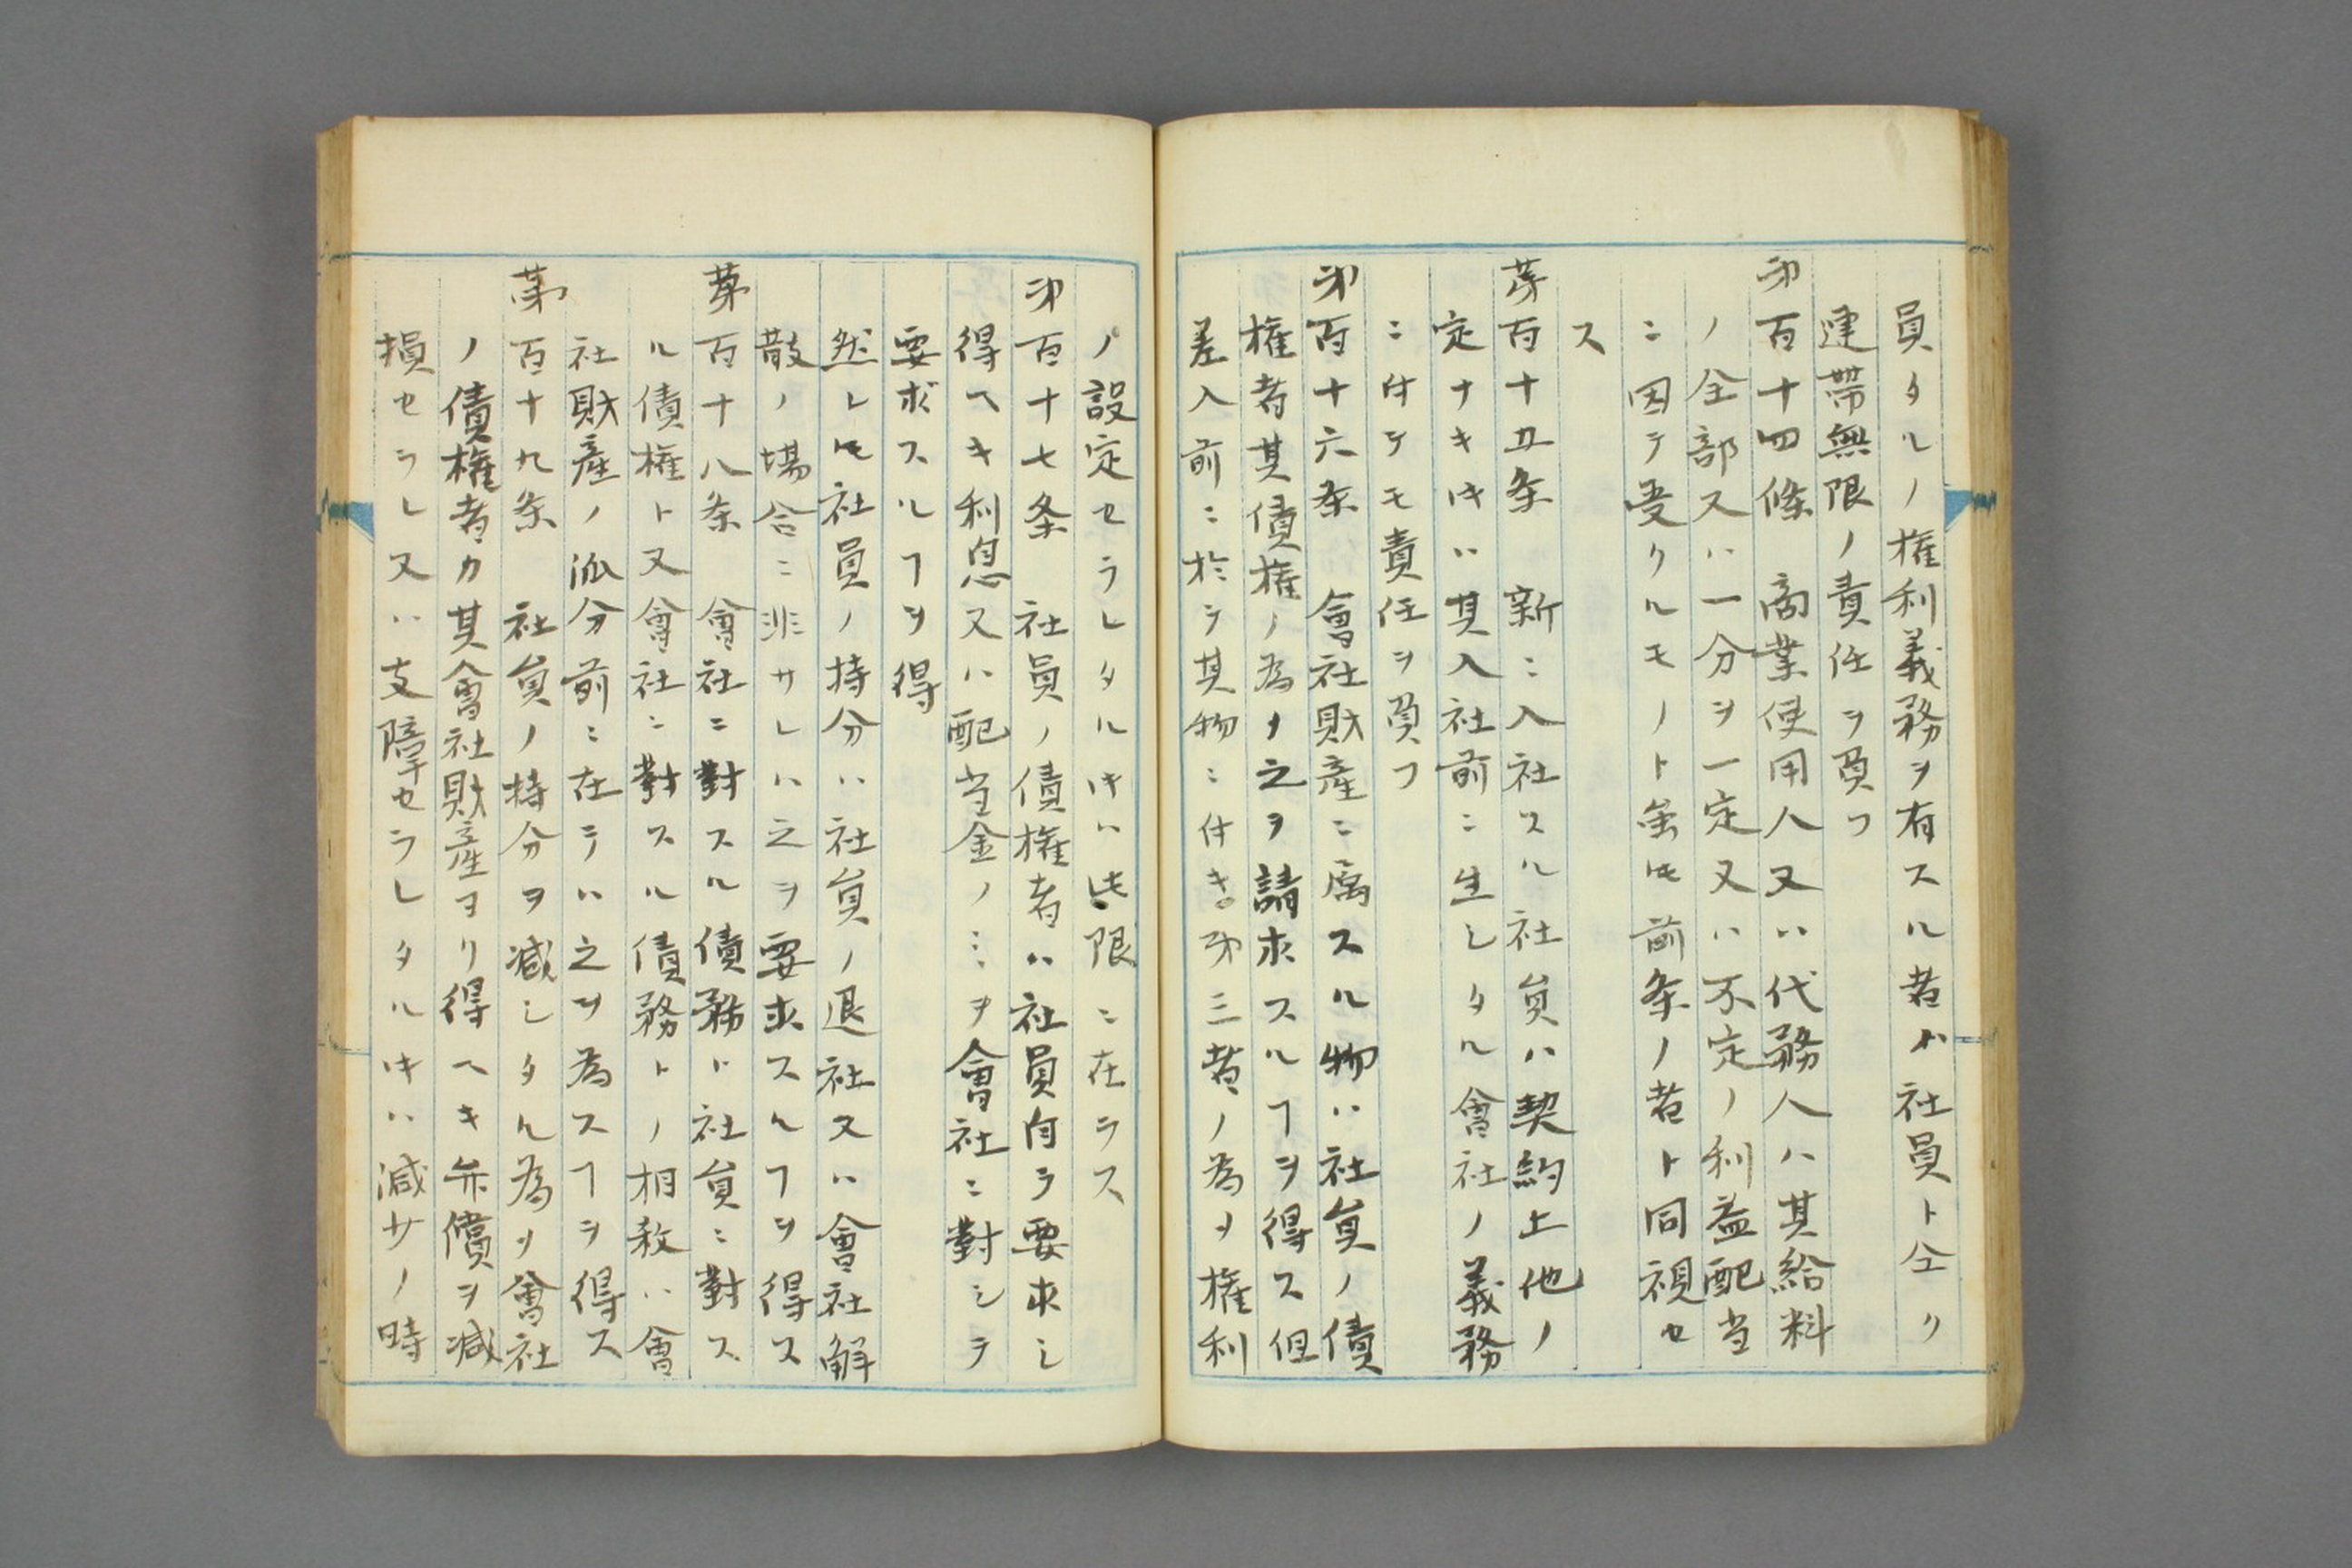 員タルノ権利義務ヲ有スル者ハ社員ト仝ク
連帯無限ノ責任ヲ負フ
第百十四條　商業使用人又ハ代務人ハ其給料
ノ全部又ハ一分ヲ一定又ハ不定ノ利益配当
ニ因テ受クルモノト虽𪜈前条ノ者ト同視セ
ス
第百十五条　新ニ入社スル社員ハ契約上他ノ
定ナキ𬼀ハ其入社前ニ生シタル會社ノ義務
ニ付テモ責任ヲ負フ
第百十六条　會社財産ニ属スル物ハ社員ノ債
権者其債権ノ為メ之ヲ請求スルヿヲ得ス但
差入前ニ於テ其物ニ付キ第三者ノ為メ権利
ノ設定セラレタル𬼀ハ此限ニ在ラス
第百十七条　社員ノ債権者ハ社員自ラ要求シ
得ヘキ利息又ハ配当金ノミヲ會社ニ對シテ
要求スルヿヲ得
然レ𪜈社員ノ持分ハ社員ノ退社又ハ會社解
散ノ場合ニ非サレハ之ヲ要求スルヿヲ得ス
第百十八条　會社ニ對スル債務ト社員ニ對ス
ル債権ト又會社ニ對スル債務トノ相殺ハ會
社財産ノ派分前ニ在テハ之ヲ為スヿヲ得ス
第百十九条　社員ノ持分ヲ減シタル為メ會社
ノ債権者カ其會社財産ヨリ得ヘキ弁償ヲ減
損セラレ又ハ支障セラレタル𬼀ハ減少ノ時